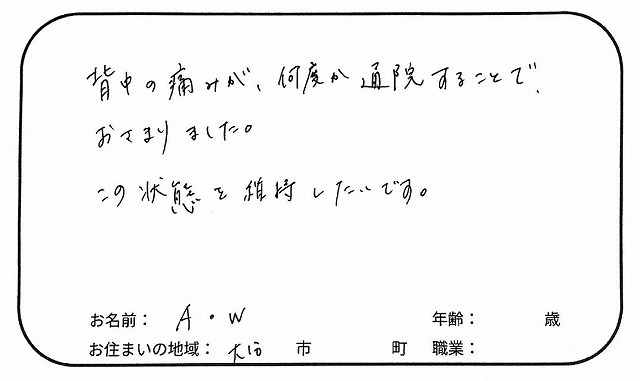 背中の痛みが、何度か通院することで、
おさまりました。
この状態を維持したいです。
お名前： A・W 年齢： 歳
お住まいの地域： 市 町 職業：